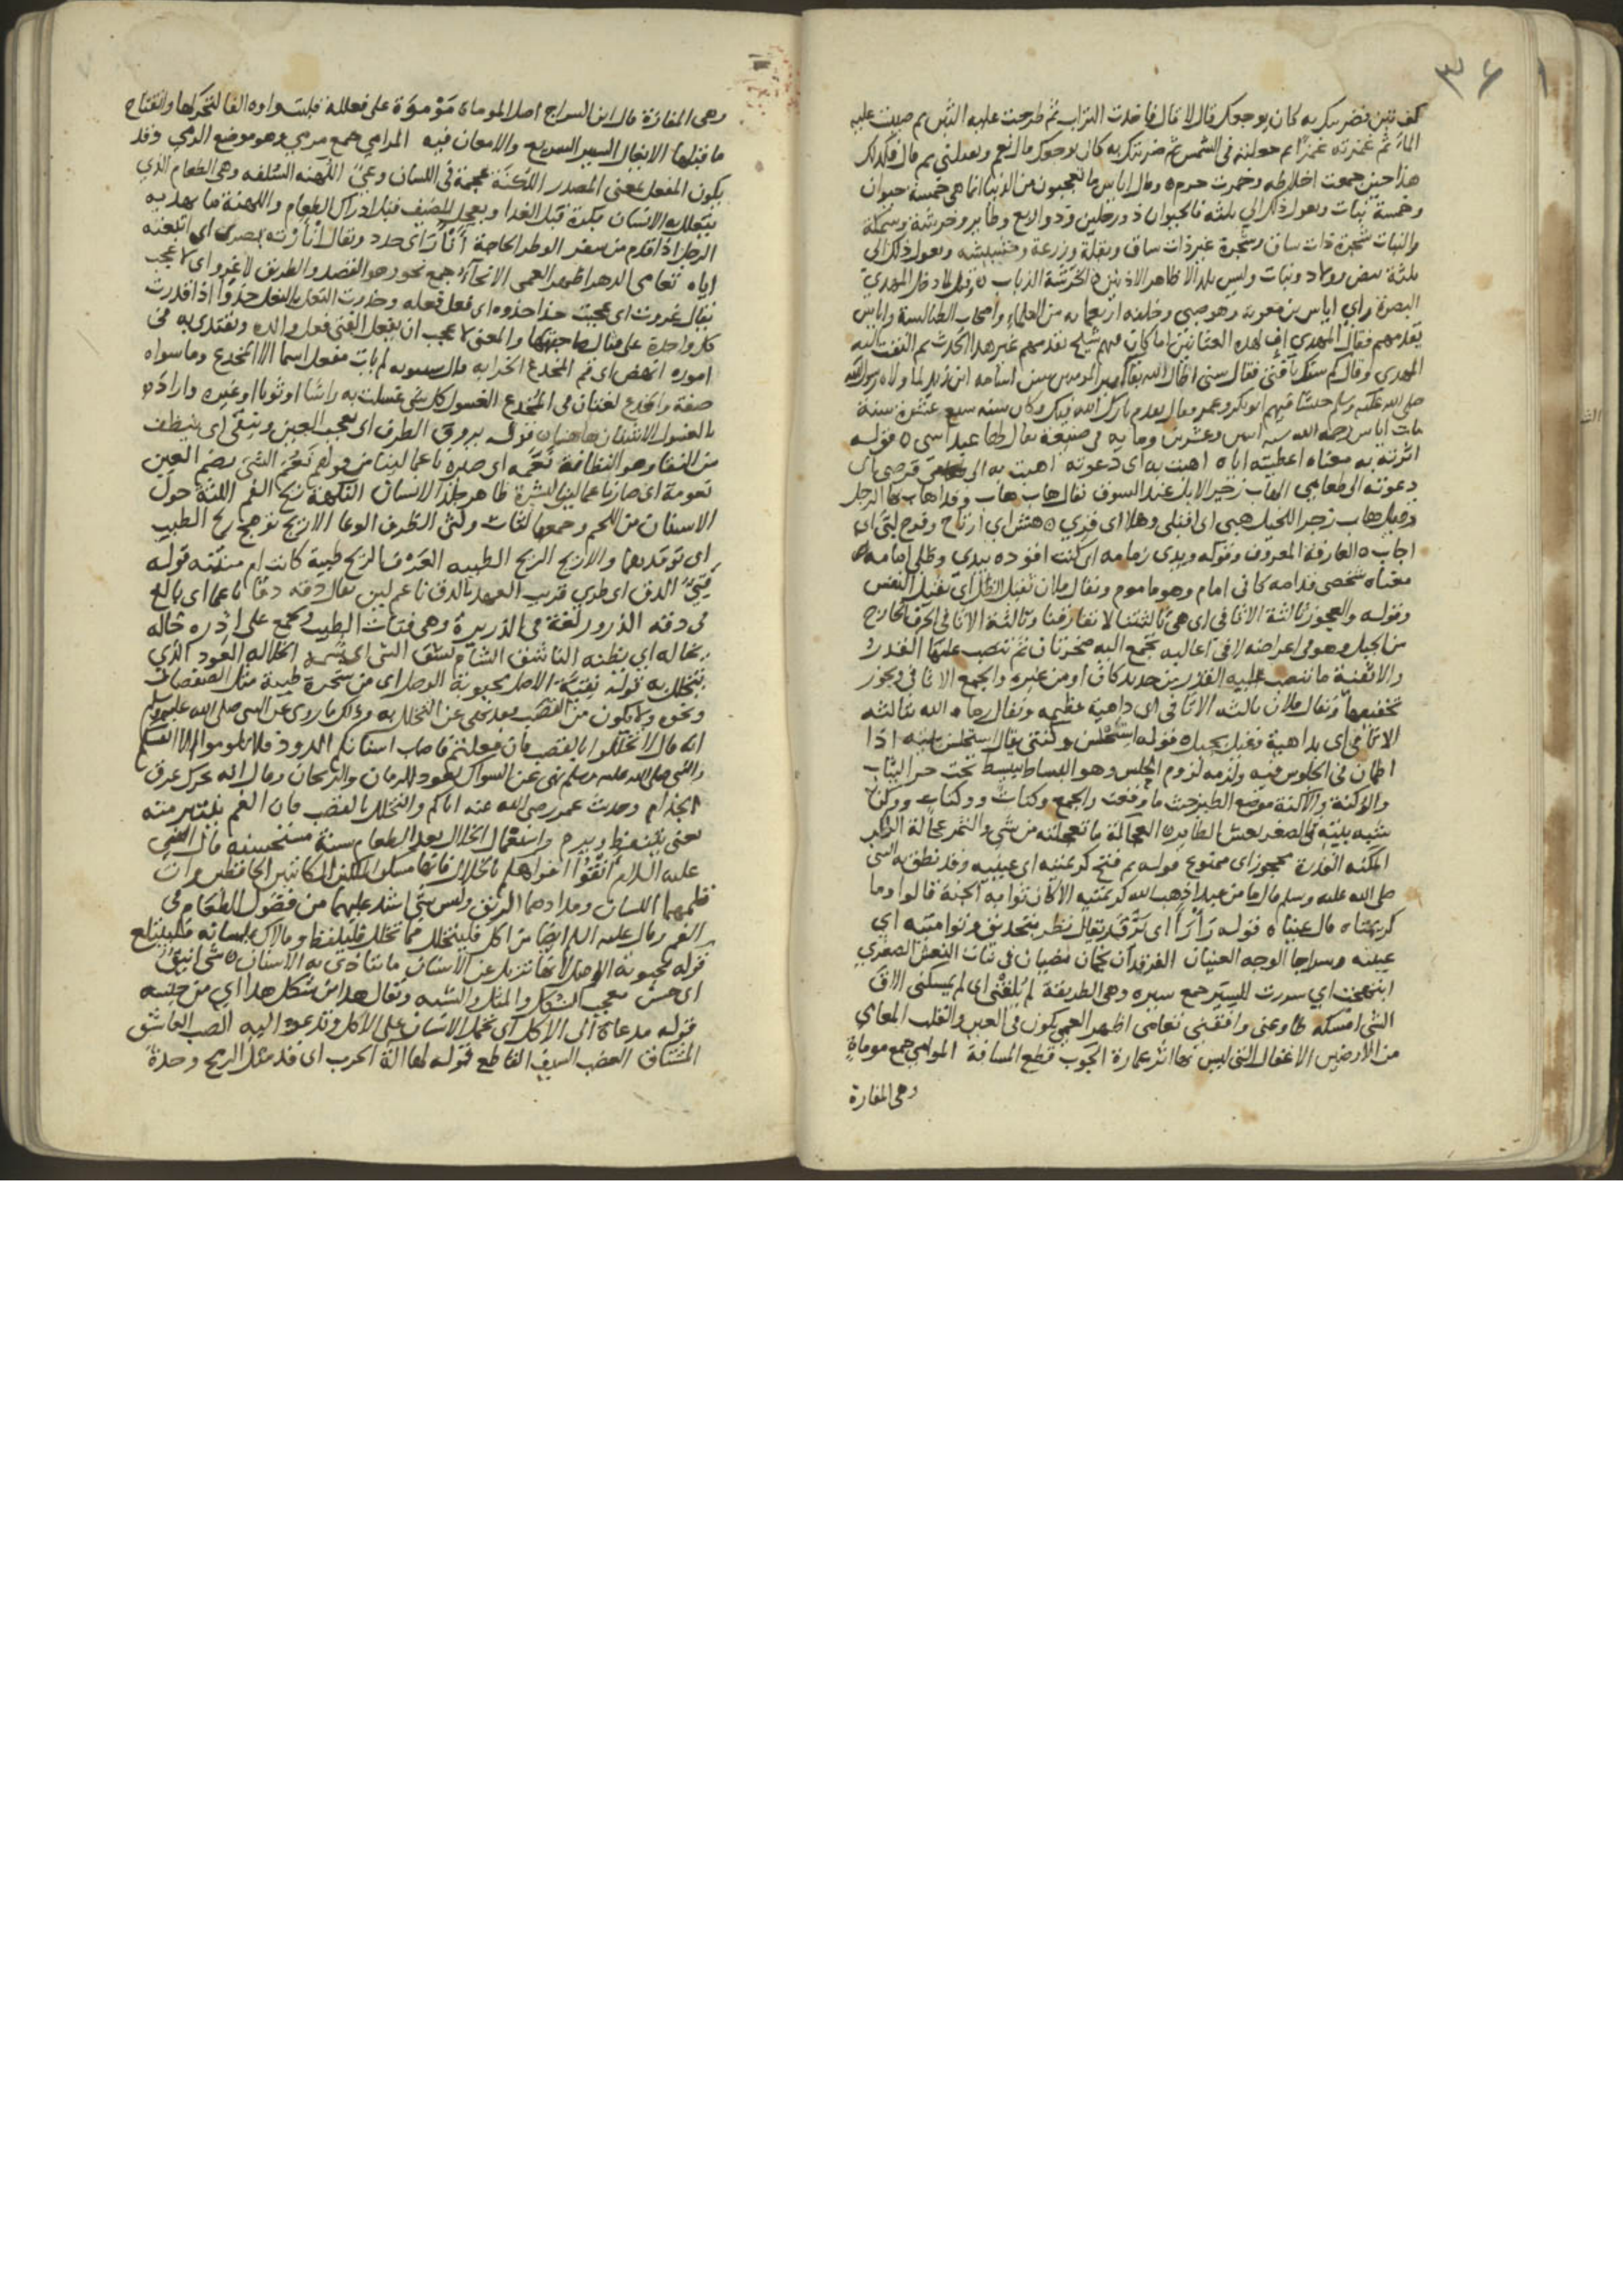 ٣٦١
كف تبن فضربتك به كان يوجعك قال لا قال فاخذت التراب ثم طرحت عليه التبن ثم صببت عليه
الماء ثم غمزته غمزا ثم جعلته في الشمس ثم ضربتك به كان يوجعك قال نعم ويقتلني ثم قال فكذلك
هذا حين جمعت اخلاطه وخمرت حرم وقال اياس ما تعجبون من الدنيا انما هي خمسة حيوان
وخمسة نبات ويعول ذلك الي ثلثة فالحيوان ذو رجلين وذو اربع وطاير وخرشة وسمكة
والنبات شجرة ذات ساق وشجرة غير ذات ساق وبقلة وزرعة وحشيشه ويعول ذلك الى
ثلثة بيض وولاد ونبات وليس يلد الا ظاهر الاذنين الخرشة الذباب وقيل لما دخل المهدي
البصرة راي اياس بن معوية وهو صبي وخلفه اربعمايه من العلماء واصحاب الطيالسة واياس
يقدمهم فقال المهدي اف لهذه العثانين اما كان فيهم شيخ تقدمهم غير هذا الحدث ثم التفت اليه
المهدي وقال كم سنك يا فتى فقال سني اطال الله بقاء امير المومنين سن اسامة ابن زيد لما ولاه رسول الله
صلى الله عليه وسلم جيشا فيهم ابو بكر وعمر فقال تقدم بارك الله فيك وكان سنه سبع عشرة سنة
مات اياس رحمه الله سنه اثنين وعشرين وماية في ضيعة يقال لها عبداسى قوله
اثرته به معناه اعطيته اياه اهبت به اى دعوته اهبت به الى قرصي اى
دعوته الى طعامي الهاب زجر الابل عند السوق يقال هاب هاب وقد اهاب بها الرجل
وقيل هاب زجر للخيل هبي اى اقبلي وهلا اى قري هش اي ارتاح وفرح لبى اى
اجاب العارفة المعروف وقوله ويدى زمامه اى كنت اقوده بيدي وظلي امامه
معناه شخصي قدامه كاني امام وهو ماموم ويقال فلان ثقيل الظل اي ثقيل النفس
وقوله والعجوز ثالثة الاثافي اى هي ثالثتنا لا تفارقنا وثالثة الاثافي الحرف الخارج
من الجبل وهو في اعراضه لا في اعاليه تجمع اليه صخرتان ثم تنصب عليها القدر
والاثفية ما تنصب عليه القدر من حديد كان او من غيره والجمع الاثافي ويجوز
تخفيفها ويقال فلان ثالثه الاثافي اى داهية عظيمه ويقال رماه الله بثالثه
الاثافي اى بداهية وقيل بجبل قوله استحلس وكنتي يقال استحلس بيته اذا
اطمان في الجلوس فيه ولزمه لزوم الحلس وهو البساط يبسط تحت حر الثياب
والوكنة والاكنة موضع الطير حيث ما وقعت والجمع وكنات ووكنات ووكن
شبه بيته في الصغر بعش الطاير العجالة ما تعجلته من شي والتمر عجالة الراكب
المكنه القدرة محجوز اى ممنوع قوله ثم فتح كريمتيه اى عينيه وقد نطق به النبي
صلى الله عليه وسلم قال ما من عبد اذهب الله كريمتيه الا كان ثوابه الجنة قالوا وما
كريمتاه قال عيناه قوله رارا اى برق ويقال نظر بتحديق وتوامتيه اي
عينيه وسراجا الوجه العينان الفرقدان نجمان مضيان في بنات النعش الصغري
ابتهجت اي سررت للسير جمع سيره وهي الطريقة لم يلقني اى لم يمسكني الاق
الشي امسكه طاوعني وافقني تعامى اظهر العمي يكون في العين والقلب المعامي
من الارضين الاغفال التي ليس بها اثر عمارة الجوب قطع المسافة الموامي جمع موماة
وهى المفازة
وهى المفازة قال ابن السراج اصل الموماة موموة على فعللة قلبت واوه الفا لتحركها وانفتاح
ما قبلها الايغال السير السريع والامعان فيه المرامي جمع مرمي وهو موضع الرمي وقد
يكون المفعل بمعنى المصدر اللكنة عجمة في اللسان وعي اللهنه السلفه وهي الطعام الذي
يتعلل به الانسان بكرة قبل الغدا ويعجل للضيف قبل ادراك الطعام واللهنة ما يهديه
الرجل اذا قدم من سفر الوطر الحاجة اتار اى حدد ويقال اتارته بصرى اى اتبعته
اياه تعامى الدهر اظهر العمى الانحاء جمع نحو وهو القصد والطريق لا غرو اى لا عجب
يقال غروت اى عجبت حذا حذوه اى فعل فعله وحذوت النعل بالنعل حذوا اذا قدرت
كل واحدة على مثال صاحبتها والمعنى لا عجب ان يفعل الفتى فعل والده ويقتدى به في
اموره انهض اى قم المخدع الخزانه قال سيبويه لم يات مفعل اسما الا المخدع وما سواه
صفة والمخدع لغتان في المخدع الغسول كل شي غسلت به راسا او ثوبا او غيره واراد
بالغسول الاشنان هاهنا قوله يروق الطرف اى يعجب العين وينقي اى ينظف
من النقا وهو النظافة نعمه اى صيره ناعما لينا من قولهم نعم الشي بضم العين
نعومة اى صار ناعما لينا البشرة ظاهر جلد الانسان النكهة ريح الفم اللثة حول
الاسنان من اللحم وجمعها لثات ولثى الظرف الوعا الاريج توهج ريح الطيب
اى توقدها والاريج الريح الطيبه العرف الريح طيبة كانت ام منتنه قوله
فتي الدق اى طري قريب العهد بالدق ناعم لين يقال دقه دقا ناعما اى بالغ
في دقه الذرور لغة في الذريرة وهي فتات الطيب وتجمع على اذره خاله
يخاله اي يظنه الناشق الشام نشق الشي اى شمه الخلاله العود الذي
يتخلل به قوله نقية الاصل محبوبة الوصل اى من شجرة طيبة مثل الصفصاف
ونحوه ولا يكون من القصب بعد نهي عن التخلل به وذلك ما روى عن النبي صلى الله عليه وسلم
انه قال لا تخللوا بالقصب فان فعلتم فاصاب اسنانكم الدود فلا تلوموا الا انفسكم
والنبي صلى الله عليه وسلم نهى عن السواك بعود الرمان والريحان وقال انه يحرك عرق
الجذام وحدث عمر رضي الله عنه اياكم والتخلل بالقصب فان الفم ينتبر منه
يعنى يتنفط ويرم واستعمال الخلال بعد الطعام سنة مستحسنه قال النبي
عليه السلام انقوا افواهكم بالخلال فانها مسكن الملكين الكاتبين الحافظين وان
قلمهما اللسان ومدادهما الريق وليس شي اشد عليهما من فضول الطعام في
الفم وقال عليه السلام ايضا من اكل فليتخلل فما تخلل فليلفظ وما لاك بلسانه فليبتلع
قوله محبوبة الوصل لانها تزيل عن الاسنان ما يتاذى به الانسان شي انيق
اى حسن معجب الشكل والمثل والشبه ويقال هذا من شكل هذا اي من جنسه
قوله مدعاة الى الاكل اى تحمل الانسان على الاكل وتدعوه اليه الصب العاشق
المشتاق العضب السيف القاطع قوله لها الة الحرب اى قد مثل الريح وحدة